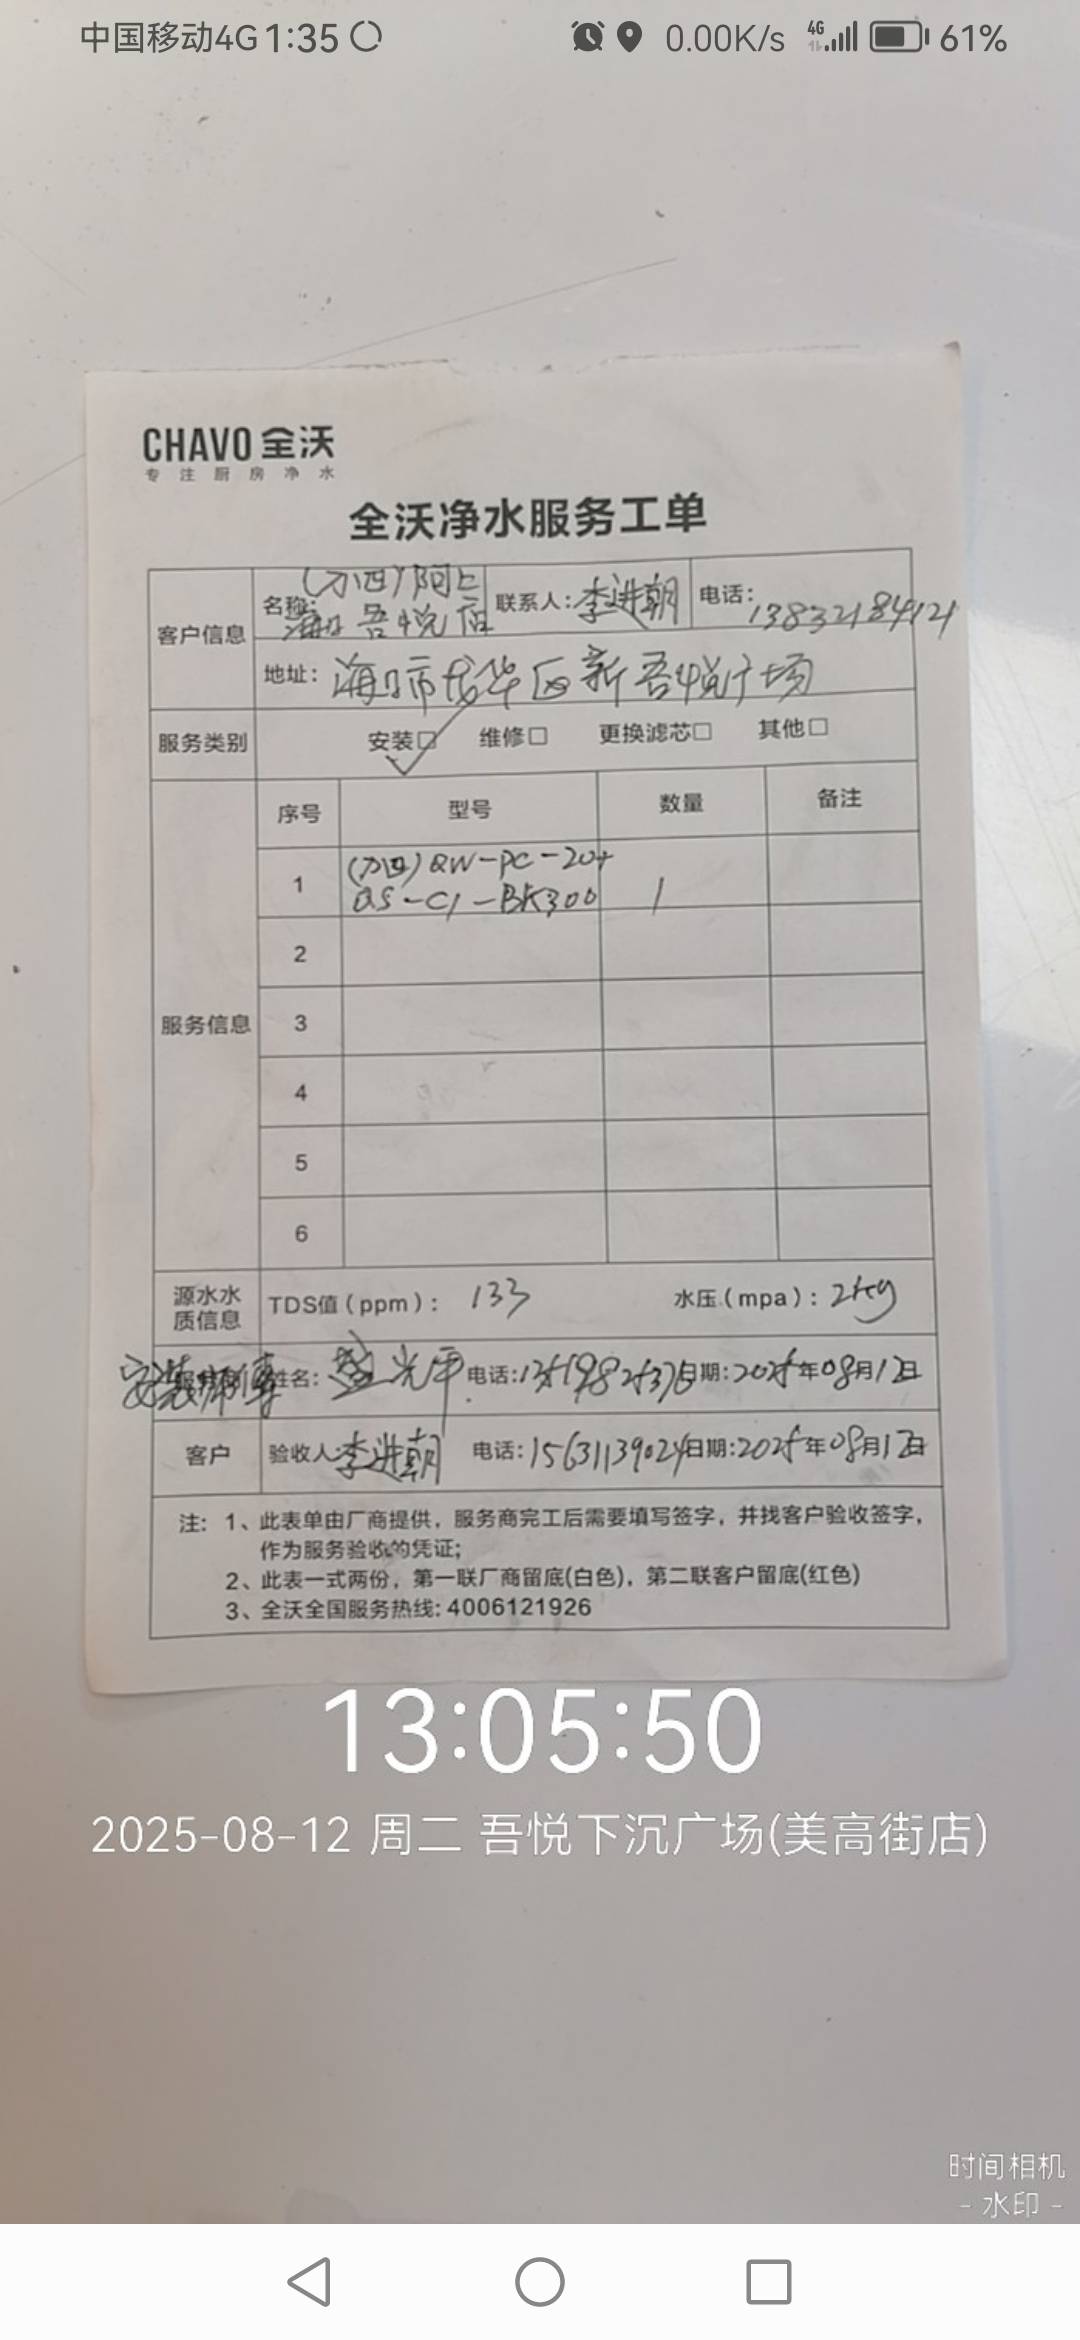 中国移动4G 1:35 0.00K/s 4G 61%
CHAVO 全沃
专注厨房净水
全沃净水服务工单
客户信息 名称: 海口吾悦店 联系人: 李进朝 电话: 13832184121
地址: 海口市龙华区新吾悦广场
服务类别 安装☑ 维修□ 更换滤芯□ 其他□
服务信息 序号 型号 数量 备注
1 QW-PC-20+ 1
QS-C1-BK300
2
3
4
5
6
源水水质信息 TDS值(ppm): 133 水压(mpa): 2kg
安装师傅 姓名: 盛光平 电话: 日期: 2025年08月12日
客户 验收人: 李进朝 电话: 15631139024 日期: 2025年08月12日
注: 1、此表单由厂商提供，服务商完工后需要填写签字，并找客户验收签字，
作为服务验收的凭证;
2、此表一式两份，第一联厂商留底(白色)，第二联客户留底(红色)
3、全沃全国服务热线: 4006121926
13:05:50
2025-08-12 周二 吾悦下沉广场(美高街店)
时间相机
- 水印 -